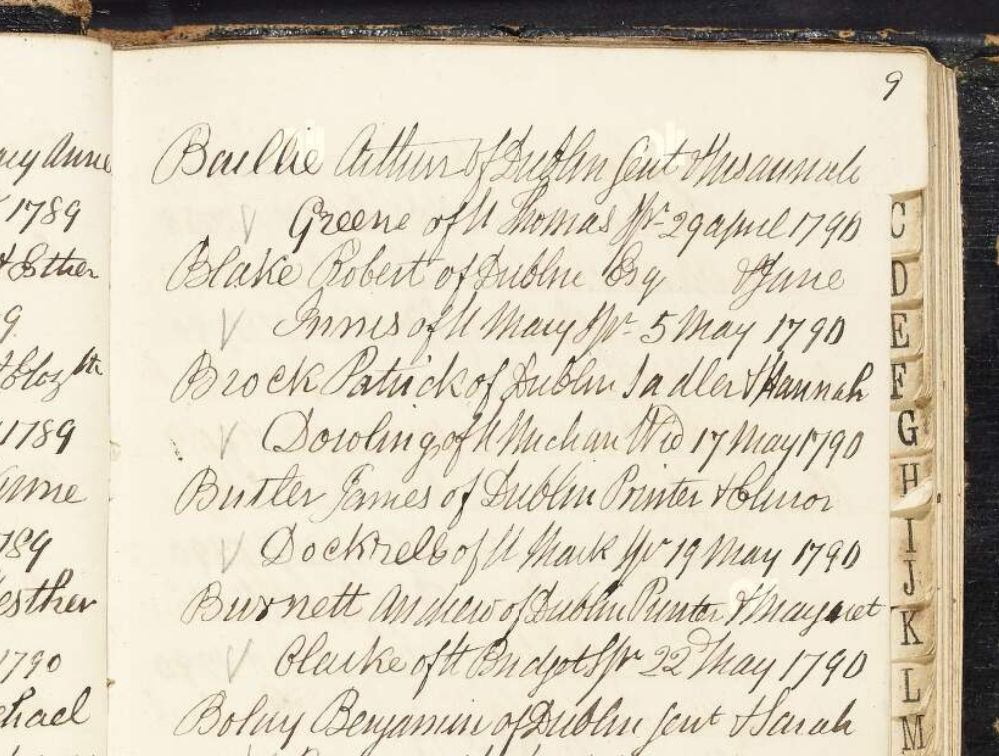 9
Baillie Arthur of Dublin Gent & Susannah
Greene of St Thomas Spr 29 april 1790
Blake Robert of Dublin Esq & Jane
Innis of St Mary Spr 5 May 1790
Brock Patrick of Dublin Sadler & Hannah
Dowling of St Michan Wid 17 May 1790
Butler James of Dublin Printer & Elinor
Dockrell of St Mark Spr 19 May 1790
Burnett Andrew of Dublin Printer & Margaret
Clarke of St Bridget Spr 22d May 1790
Benjamin of Dublin Gent & Sarah
Anne
1789
& Esther
9
1789
Anne
789
Hesther
1790
C
D
E
F
G
H
I
J
K
L
M